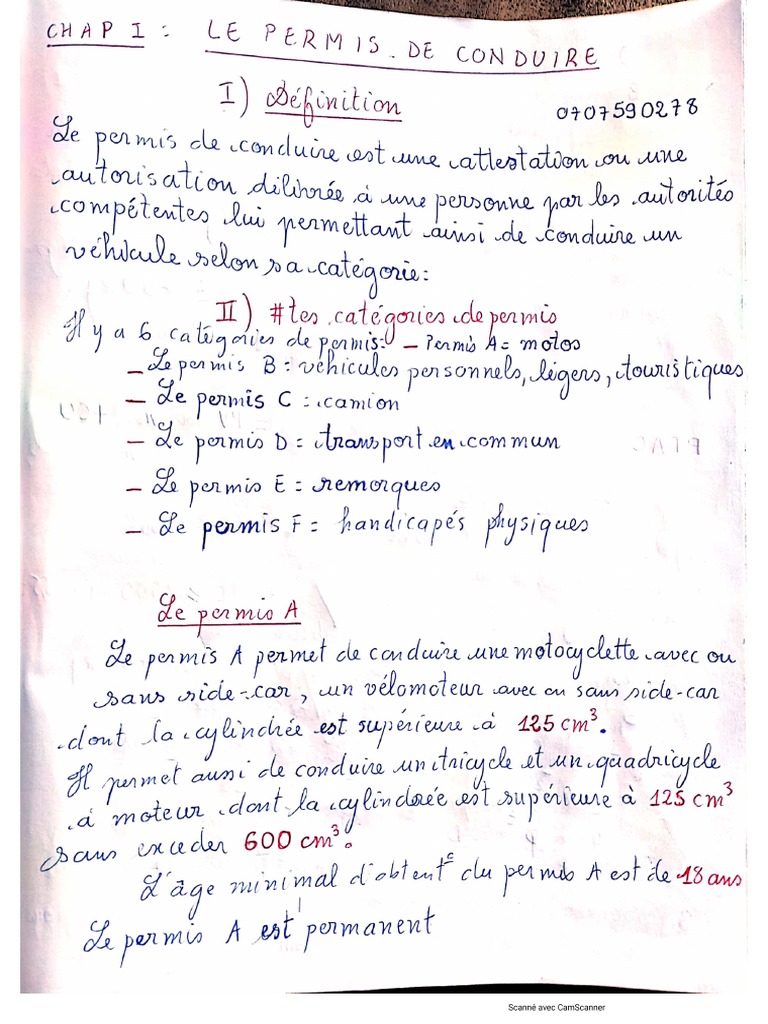 CHAP I : LE PERMIS DE CONDUIRE
I) Définition
0707590278
Le permis de conduire est une attestation ou une
autorisation délibrée à une personne par les autorités
compétentes lui permettant ainsi de conduire un
véhicule selon sa catégorie:
II) #tes catégories de permis
Il y a 6 catégories de permis: – Permis A= motos
– Le permis B : véhicules personnels, légers, touristiques
– Le permis C : camion
– Le permis D = transport en commun
– Le permis E = remorques
– Le permis F = handicapés physiques
Le permis A
Le permis A permet de conduire une motocyclette avec ou
sans side-car, un vélomoteur avec ou sans side-car
dont la cylindrée est supérieure à 125 cm³.
Il permet aussi de conduire un tricycle et un quadricycle
à moteur dont la cylindrée est supérieure à 125 cm³
sans exceder 600 cm³.
L'âge minimal d'obtent° du permis A est de 18 ans
Le permis A est permanent
Scanné avec CamScanner